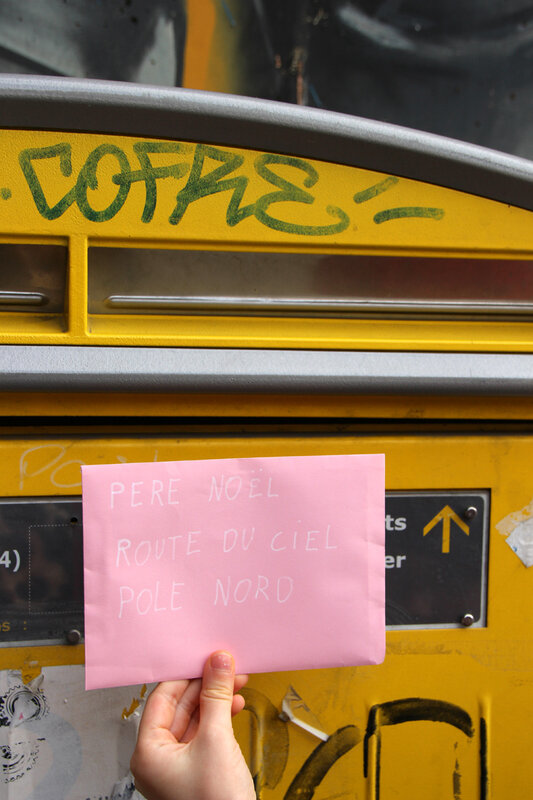 COFRE
PERE NOEL
ROUTE DU CiEL
POLE NORD
ts
er
4)